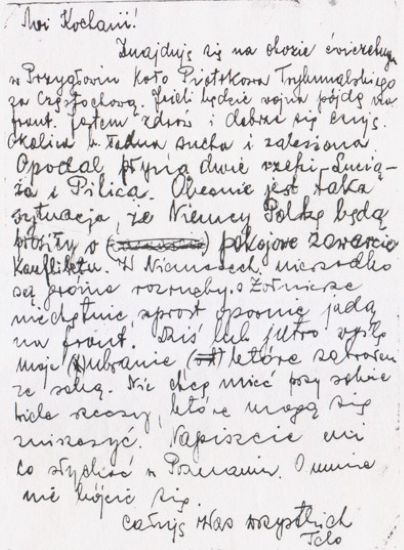 Moi Kochani!
Znajduję się na obozie ćwiczebnym
w Przygłowiu Koło Piotrkowa Trybunalskiego
za Częstochową. Jeżeli będzie wojna pójdę na
front. Jestem zdrów i dobrze się czuję.
Okolica b. ładna sucha i zalesiona.
Opodal płyną dwie rzeki - Lucią-
ża i Pilica. Obecnie jest taka
sytuacja, że Niemcy Polskę będą
prosiły o pokojowe zawarcie
Konfliktu. W Niemczech nierzadko
są głośne rozruchy. Żołnierze
niechętnie, wprost opornie jadą
na front. Dziś lub jutro wyślę
moje ubranie, które zabrałem
ze sobą. Nie chcę mieć przy sobie
wiele rzeczy, które mogą się
zniszczyć. Napiszcie mi
co słychać w Poznaniu. O mnie
nie bójcie się.
Całuję Was wszystkich